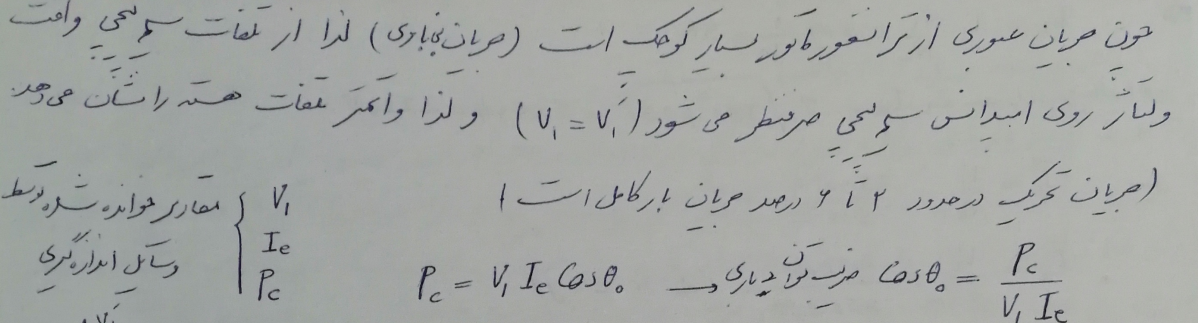 چون جریان عبوری از ترانسفورماتور بسیار کوچک است (جریان بی‌باری) لذا از تلفات سیم پیچی و افت
ولتاژ روی امپدانس سیم پیچی صرفنظر می شود (V₁ = V₁′) و لذا واتمتر تلفات هسته را نشان می دهد
(جریان تحریک در حدود ۲ تا ۶ درصد جریان بار کامل است)
مقادیر خوانده شده توسط وسایل اندازه گیری { V₁ Iₑ P꜀
P꜀ = V₁ Iₑ Cosθ₀ → ضریب توان بی باری Cosθ₀ = P꜀ / V₁ Iₑ